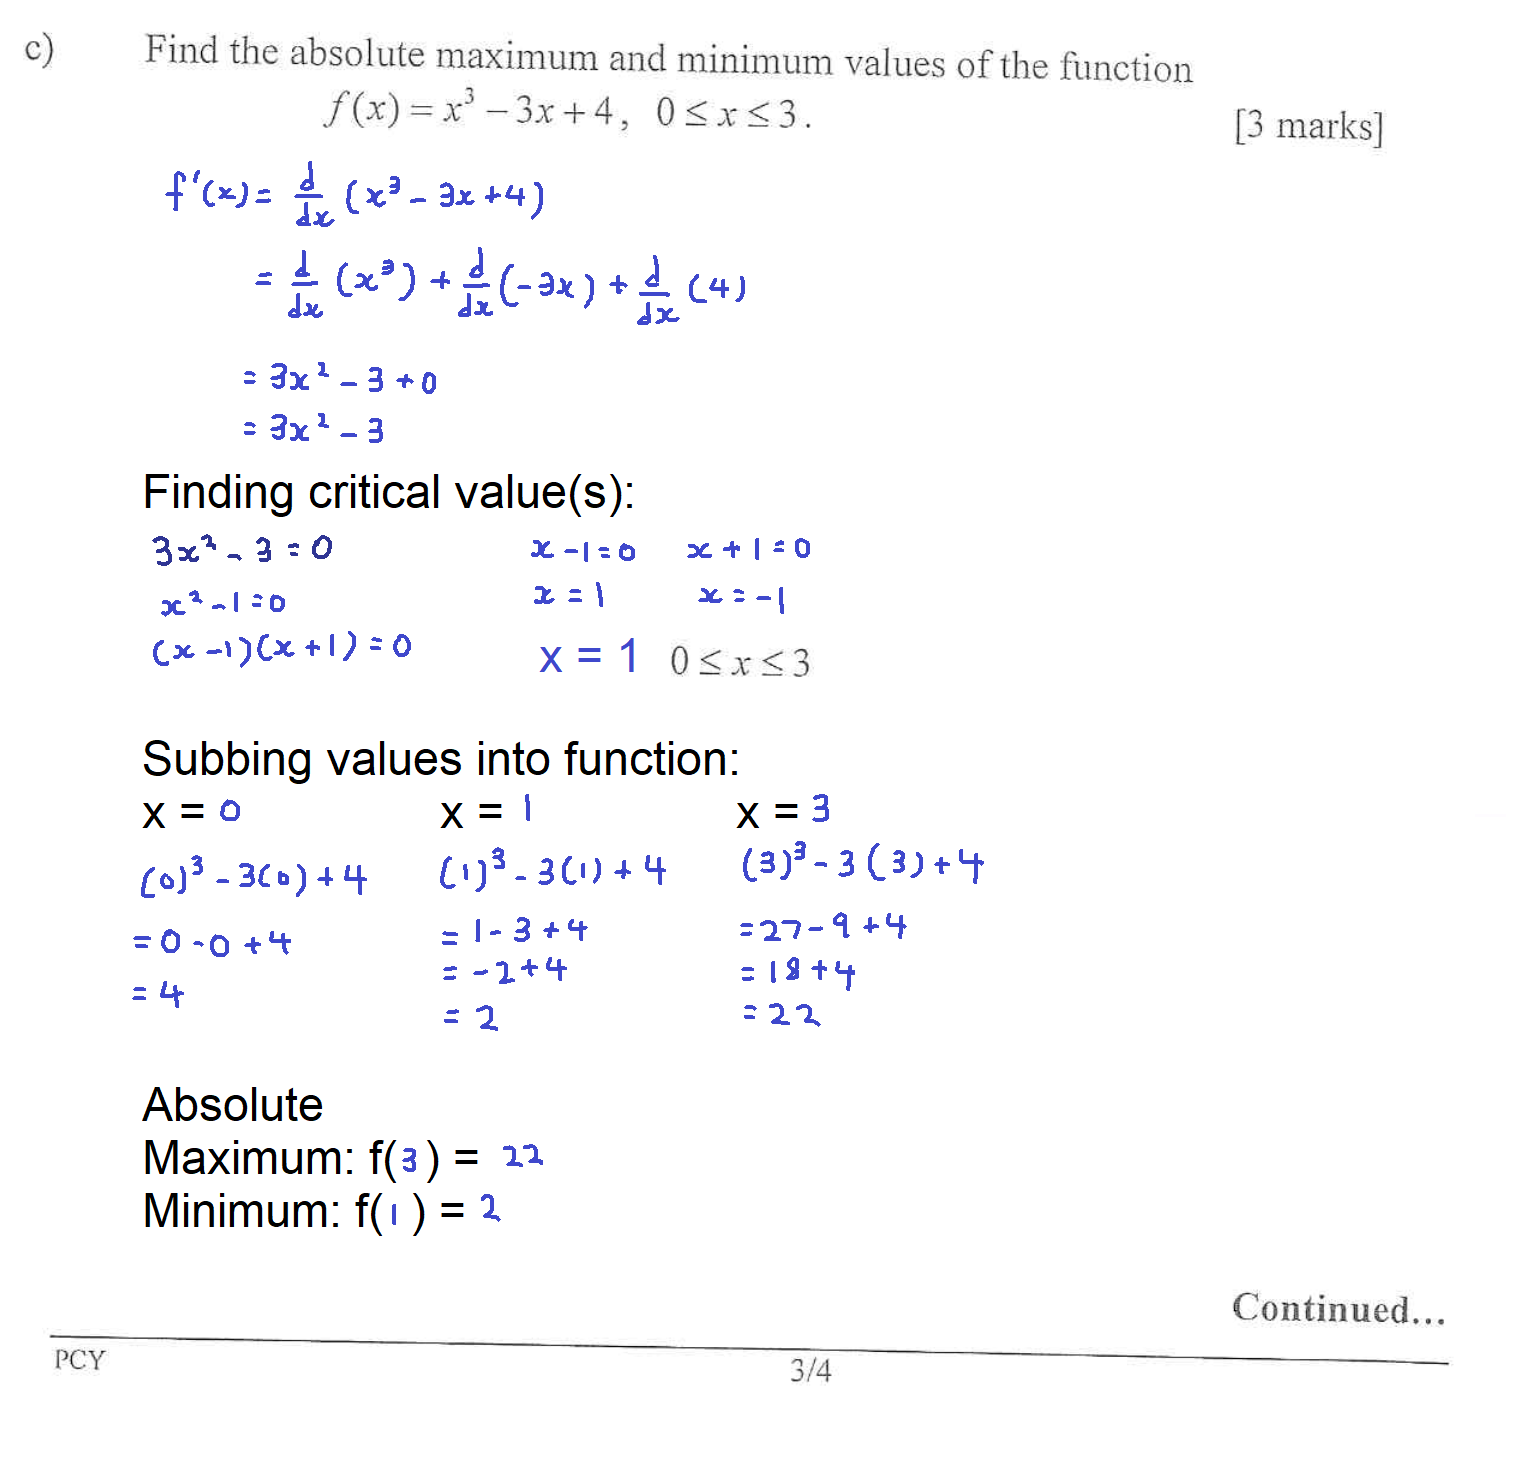 c) Find the absolute maximum and minimum values of the function
f(x) = x³ − 3x + 4, 0 ≤ x ≤ 3.
[3 marks]
f'(x) = d/dx (x³ - 3x + 4)
= d/dx (x³) + d/dx (-3x) + d/dx (4)
= 3x² - 3 + 0
= 3x² - 3
Finding critical value(s):
3x² - 3 = 0
x² - 1 = 0
(x - 1)(x + 1) = 0
x - 1 = 0 x + 1 = 0
x = 1 x = -1
x = 1 0 ≤ x ≤ 3
Subbing values into function:
x = 0
(0)³ - 3(0) + 4
= 0 - 0 + 4
= 4
x = 1
(1)³ - 3(1) + 4
= 1 - 3 + 4
= -2 + 4
= 2
x = 3
(3)³ - 3(3) + 4
= 27 - 9 + 4
= 18 + 4
= 22
Absolute
Maximum: f(3) = 22
Minimum: f(1) = 2
Continued...
PCY 3/4